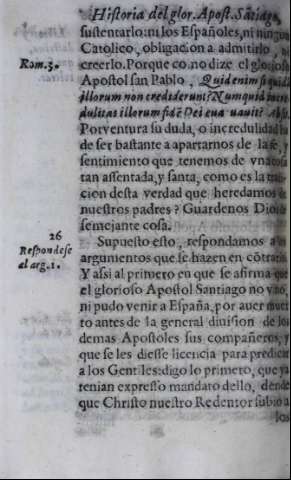 Historia del glor. Apost. Sātiago,
sustentarlo: ni los Españoles, ni ningun
Catolico, obligacion a admitirlo, ni
creerlo. Porque co no dize el glorioso
Rom. 3.
Apostol san Pablo, Quid enim si quidā
illorum non crediderunt? Numquid incre
dulitas illorum fidē Dei eua uauit? Absit.
Porventura su duda, o incredulidad ha
de ser bastante a apartarnos de la fe, y
sentimiento que tenemos de vna cosa
tan assentada, y santa, como es la tra
cion desta verdad que heredamos de
nuestros padres? Guardenos Dios de
semejante cosa.
26
Respondese
al arg. 1.
Supuesto esto, respondamos a los
argumentos que se hazen en cōtrario.
Y assi al primero en que se afirma que
el glorioso Apostol Santiago no vino,
ni pudo venir a España, por auer muer
to antes de la general diuision de los
demas Apostoles sus compañeros, y
que se les diesse licencia para predicar
a los Gentiles: digo lo primero, que ya
tenian expresso mandato dello, dende
que Christo nuestro Redentor subio a
los